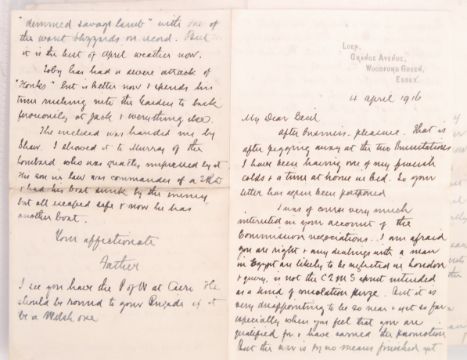 LOEN,
GRANGE AVENUE,
WOODFORD GREEN,
ESSEX.
4 April 1916
My Dear Cecil
after business pleasure. That is
after pegging away at the two
I have been having one of my
colds & a time at home in bed. So your
letter has again been postponed
I was of course very much
interested in your account of the
Commission negociations. I am afraid
you are right & any dealings with a man
in Egypt are likely to be neglected in London
is not the C.Q.M.S. intended
as a kind of consolation prize. But it is
very disappointing to be so near & yet so far
especially when you feel that you are
qualified for & have earned the promotion
But the war is by no means finished yet
"dimmed savage lamb" with one of
the worst blizzards on record. But
it is the best of April weather now.
Toby has had a severe attack of
but is better now & spends his
time rushing into the garden to bark
furiously at Jack & everything else.
The enclosed was handed me by
Shaw. I showed it to Murray of the
Lombard who was greatly impressed by it
His son in law was commander of a
& had his boat sunk by the enemy
but all escaped safe & now he has
another boat.
Your affectionate
Father
I see you have the P of W at He
should be round to your Brigade if it
be a Welsh one